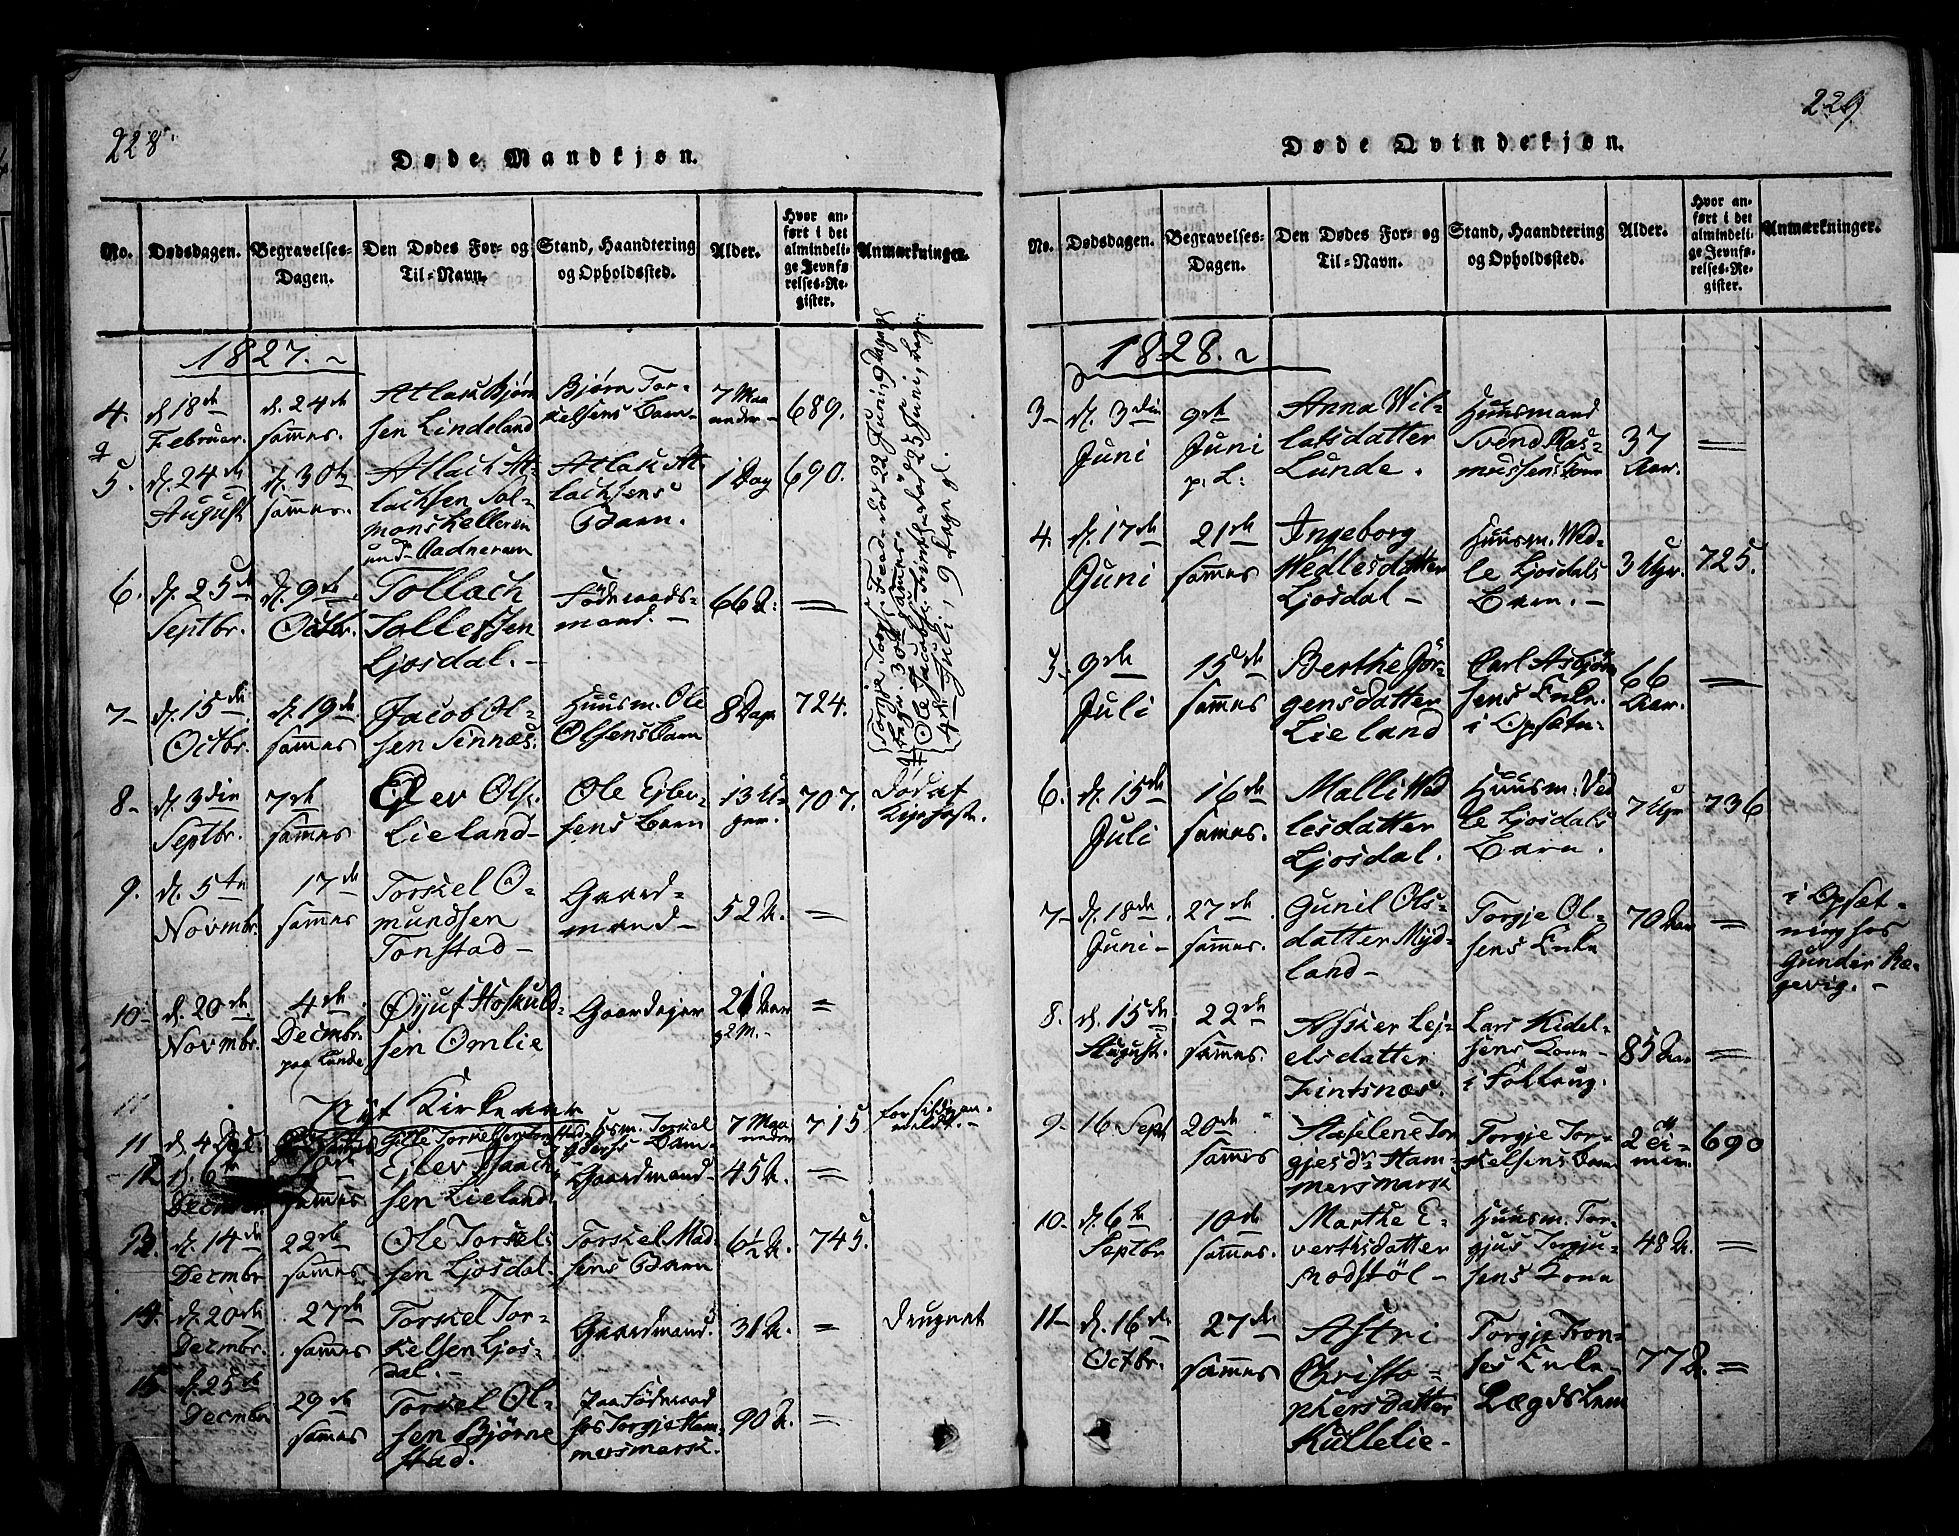 228.
Døde Mandkjøn.
No.
Dødsdagen.
Begravelses-
Dagen.
Den Dødes For- og
Til-Navn.
Stand, Haandtering
og Opholdssted.
Alder.
Hvor an-
ført i det
almindeli-
ge Jevnfø
relses-Re-
gister.
Anmærkninger.
1827.
4.
d. 18de
Februar.
d. 24de
sammes.
Atlak Bjørn
sen Lindeland
Bjørn Tor-
kelsens Barn
7 Maa
neder
689.
5.
d. 24de
August
d. 30te
sammes.
Atlach At-
lachsen Sol-
Aadneram
Atlak At-
lachsens
Barn.
1 Dag
690.
6.
d. 25de
Septbr.
d. 9de
Octbr.
Tollach
Tollefsen
Ljosdal.
Föderaads-
mand.
66 A.
=
7
d. 15de
Octbr.
d. 19de
sammes
Jacob Ol-
sen Sinnes.
Huusm. Ole
Olsens Barn
8 Dage
724.
8
d. 3die
Septbr.
7de
sammes
Ejlev Ols.
Lieland
Ole Ejlev-
sens Barn
13 U-
ger.
707.
Död af
9.
d. 5te
Novmbr.
17de
sammes
Torkel O-
mundsen
Tonstad
Gaard-
mand
52 A.
=
10
d. 20de
Novmbr.
4de
Decmbr.
paa Lunde
Öjuf Hoskuld-
sen Omlie
Gaardejer
21 Aar
=
Nyt Kirkeaar
11
d. 4de
Husm. Torkel
7 Maa
neder
715
for sildig an-
meldt.
12
d. 6te
Decmber
sammes
Ejlev Isaach
sen Lieland
Gaardmand
45 A.
=
13.
d. 14de
Decmbr
22de
sammes
Ole Torkel-
sen Ljosdal
Torkel Mad
sens Barn
6½ A.
745.
14.
d. 20de
Decmbr.
27de
sammes
Torkel Tor-
kelsen Ljos-
dal.
Gaardmand.
31 A.
=
Druknet
15
d. 25de
Decmbr
29de
sammes
Torkel Ol-
sen Bjørne
stad.
paa Föderaad
hos Torgje Ham-
mersmark.
90 A.
=
229
Døde Qvindekjøn.
No.
Dødsdagen.
Begravelses-
Dagen.
Den Dødes For- og
Til-Navn.
Stand, Haandtering
og Opholdssted.
Alder.
Hvor an-
ført i det
almindeli-
ge Jevnfø-
relses-Re-
gister.
Anmærkninger.
1828.
3
d. 3die
Juni
9de
Juni
p. L:
Anna Wil-
latsdatter
Lunde.
Huusmand
Svend Ras-
mussens Kone
37
Aar.
=
4.
d. 17de
Juni
21de
sammes
Ingeborg
Wedlesdatter
Ljosdal
Huusm. Wed-
le Ljosdals
Barn.
3 Uger.
725.
5.
9de
Juli
15de
sammes
Berthe Jör-
gensdatter
Lieland
Carl Asbjörn
sens Enke
66
Aar.
=
6.
d. 15de
Juli
16de
sammes.
Malli Wed
lesdatter
Ljosdal.
Huusm. Ved
le Ljosdals
Barn.
7 Uger
736
7
d. 18de
Juni
27de
sammes.
Gunil Ols-
datter Mijd-
land
Torgje Ol-
sens Enke
70 Aar
=
i Opsæt-
ning hos
Gunder Ræ-
gevig.
8.
d. 15de
August.
22de
sammes.
Assier Lej-
elsdatter
Fintsnæs.
Lars Kidel-
sens Kone
85 Aar
=
9
16 Sept
20de
sammes
Aaselene Tor
gjesdr Ham-
mersmark
Torgje Tor-
kelsens Barn
690
10
d. 6te
Septbr
10de
sammes.
Marthe E-
vertsdatter
Modstöl
Huusm. Tor-
gjus Torgju-
sens Kone
48 A.
=
11
d. 16de
Octbr.
27de
sammes
Astri
Christo-
phersdatter
Kullelie
Torgje Tron-
ses Enke
Lægdslem
77 A.
=